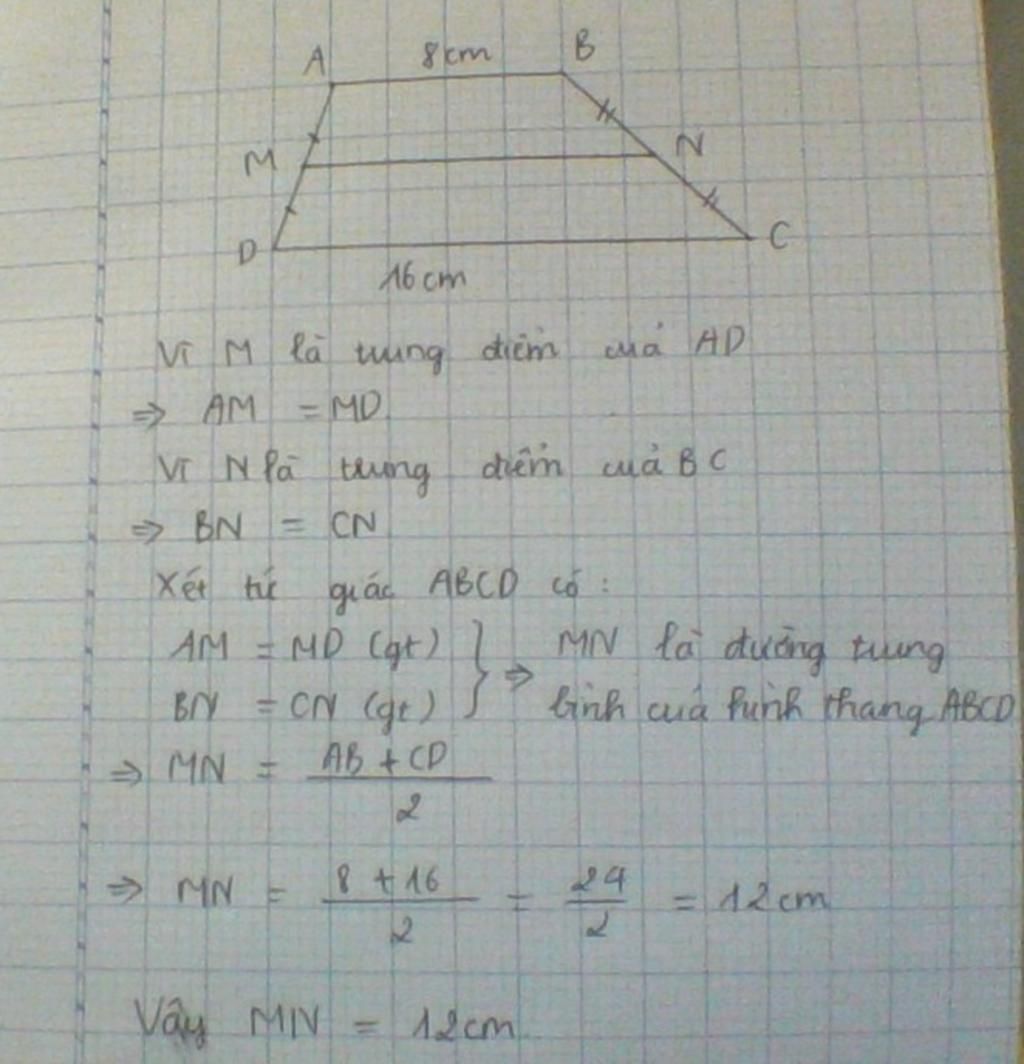 A 8cm B
M N
D C
16cm
Vì M là trung điểm của AD
⇒ AM = MD
Vì N là trung điểm của BC
⇒ BN = CN
Xét tứ giác ABCD có:
AM = MD (gt) } ⇒ MN là đường trung
BN = CN (gt) bình của hình thang ABCD
⇒ MN = AB + CD
2
⇒ MN = 8 + 16 = 24 = 12cm
2 2
Vậy MN = 12cm